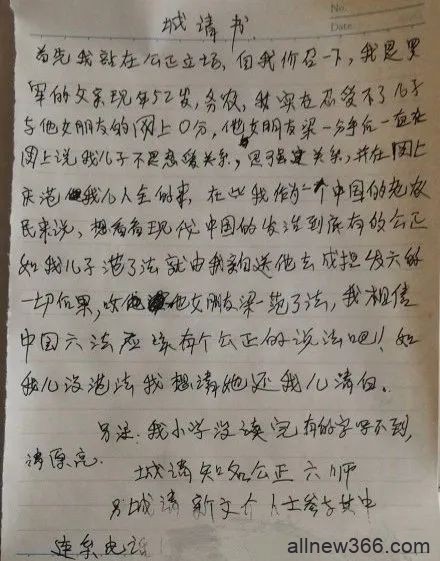 城请书
No.
Date
首先我站在公正立场,自我价召一下,我是罗
军的父亲现年52岁,务农,我实在忍受不了儿子
与他女朋友的网上0分,他女朋友梁一分手后一直在
网上说我儿子不是恋爱关系,是强 关系,并在网上
我儿人全的事,在此我作为一个中国的老农
民来说,想看看现代中国的发 到底有的公正
如我儿子范了法就由我亲自送他去成担 六的
一切后果, 他女朋友梁一范了法,我相信
中国六法应该有个公正的说法吧!如
我儿没范法我想请她还我儿清白。
另注:我小学没读完有的字写不到,
请原谅。
城请知名公正六师
另城请新文介人士参与其中
连系电话
allnew366.com